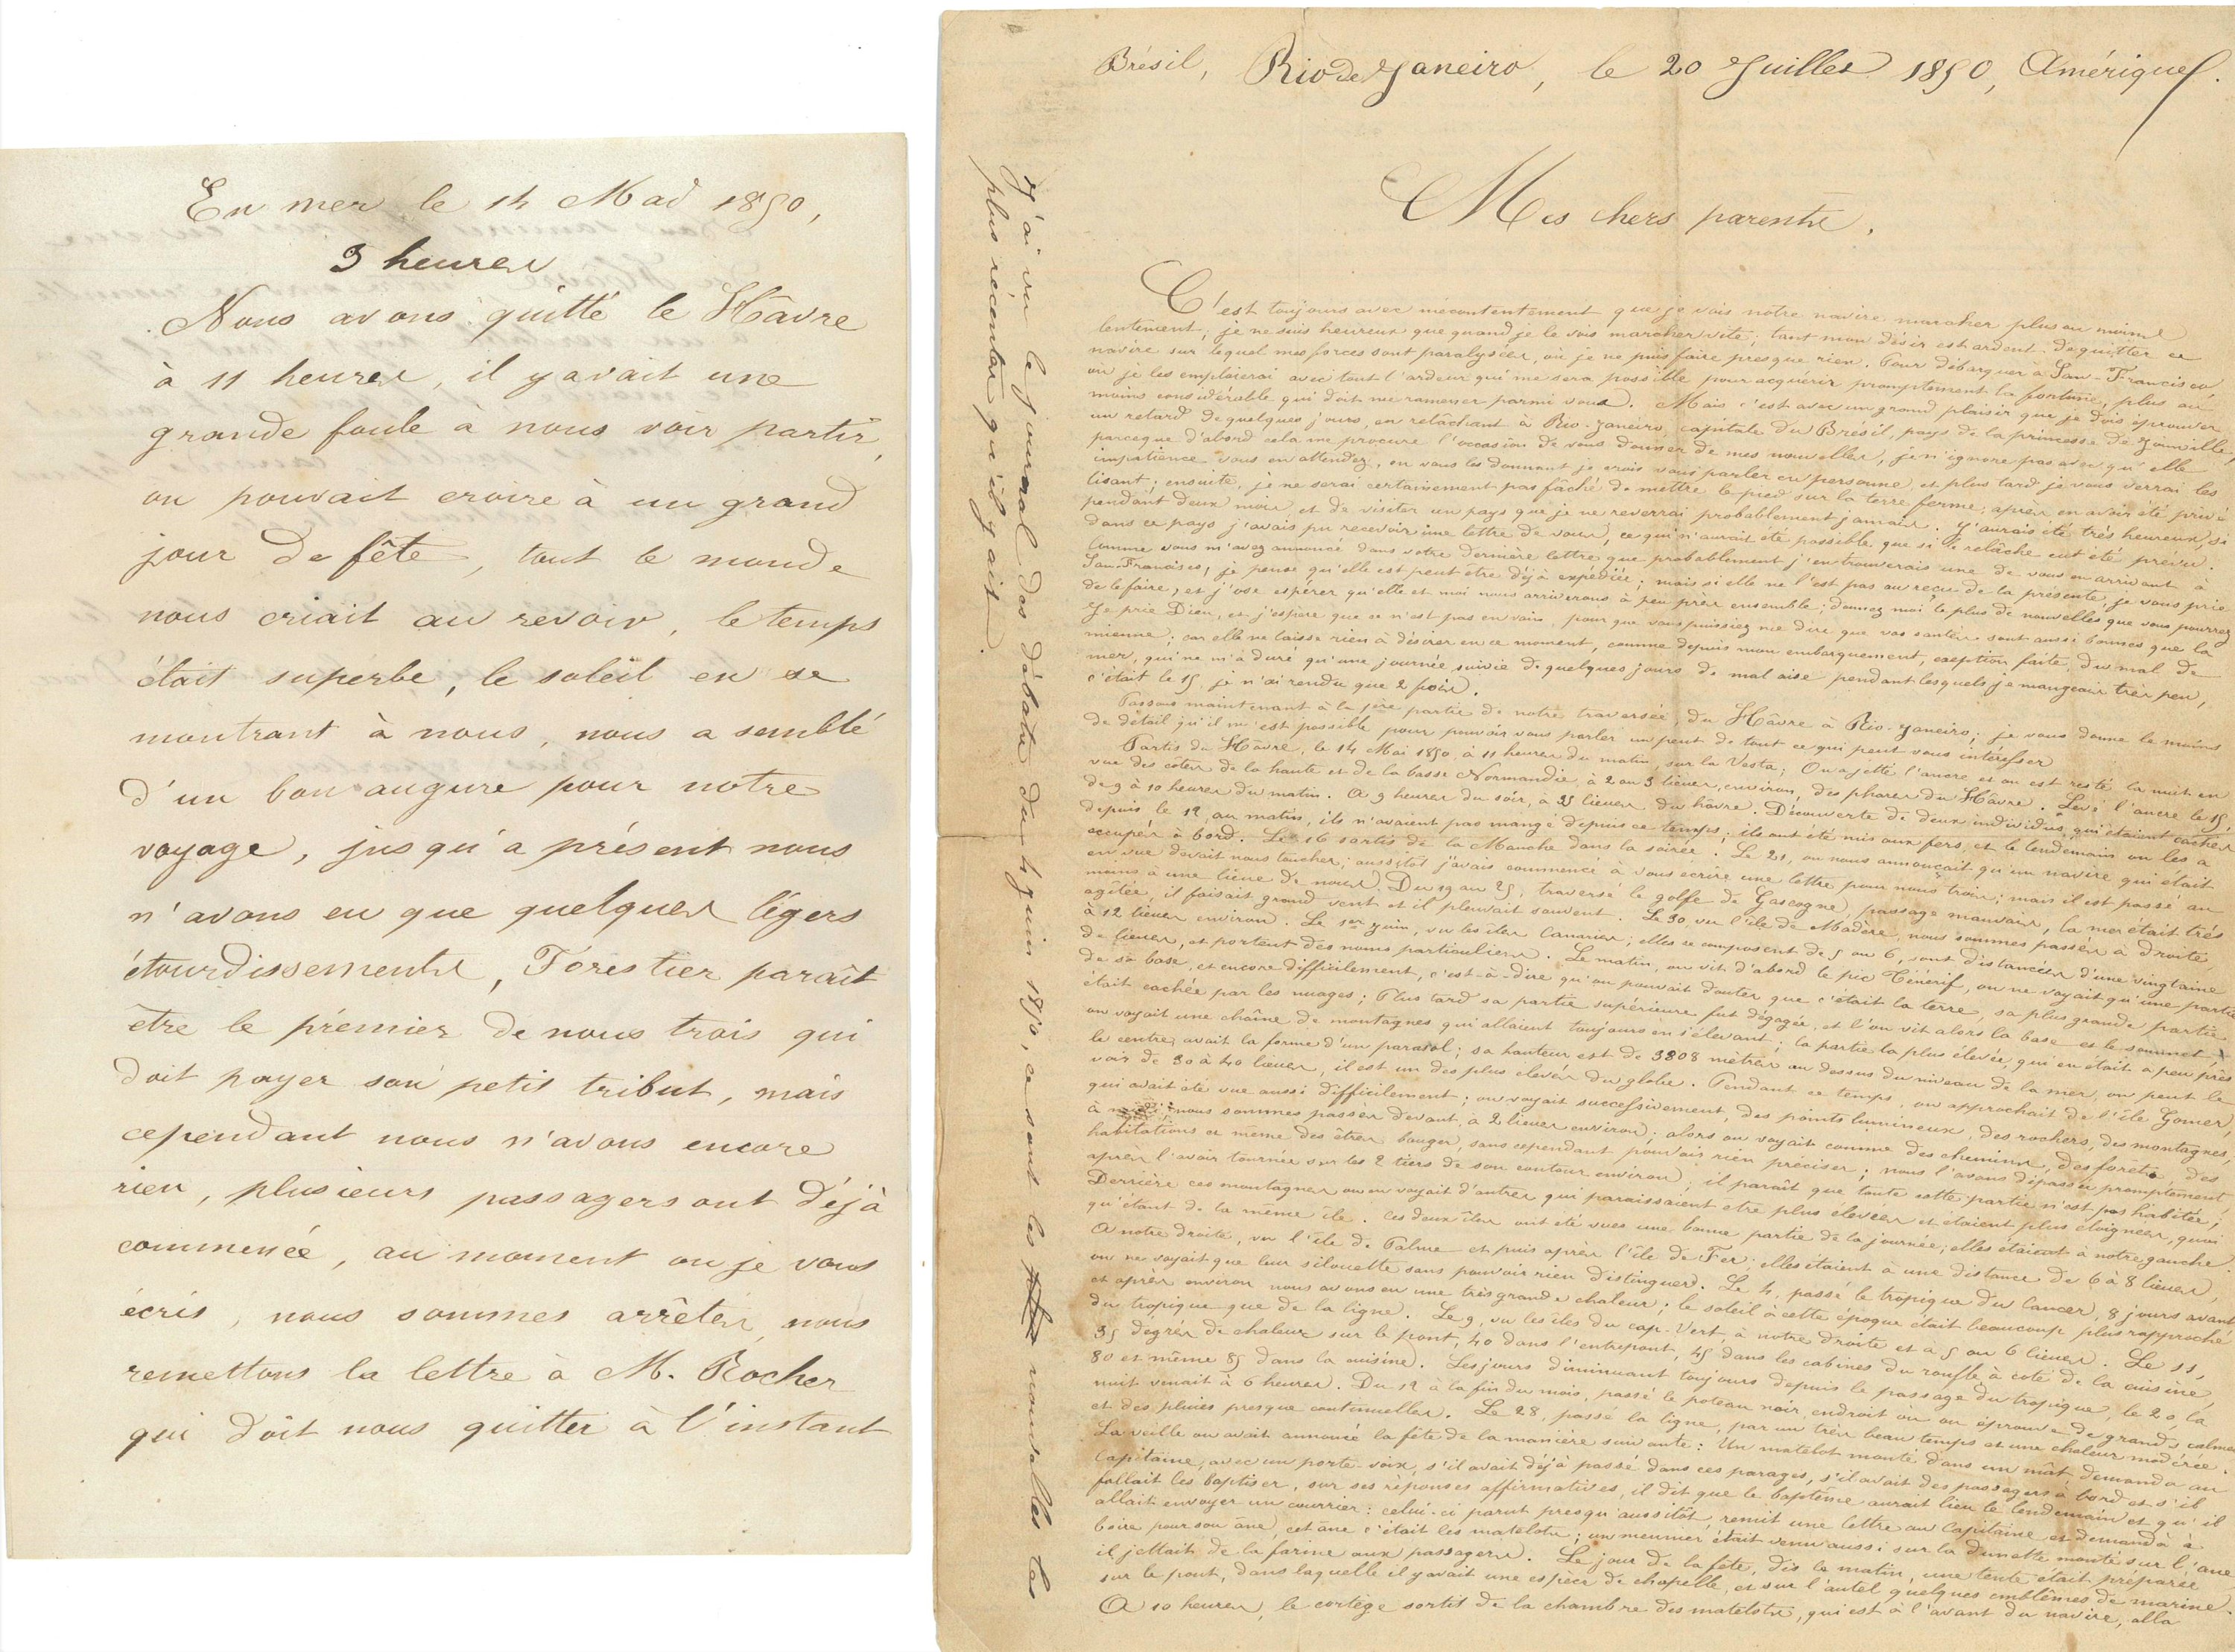 En mer le 14 Mai 1850,
3 heures
Nous avons quitté le Hâvre
à 11 heures, il y avait une
grande foule à nous voir partir,
on pouvait croire à un grand
jour de fête, tout le monde
nous criait au revoir, le temps
était superbe, le soleil en se
montrant à nous, nous a semblé
d'un bon augure pour notre
voyage, jusqu'à présent nous
n'avons eu que quelques légers
étourdissements, Forestier paraît
être le prémier de nous trois qui
doit payer son petit tribut, mais
cependant nous n'avons encore
rien, plusieurs passagers ont déjà
commencé, au moment ou je vous
écris, nous sommes arrêtés, nous
remettons la lettre à M. Rocher
qui doit nous quitter à l'instant
Brésil, Rio de Janeiro, le 20 Juillet 1850, Amérique.
Mes chers parents,
C'est toujours avec mécontentement que je vois notre navire marcher plus ou moins
lentement; je ne suis heureux que quand je le vois marcher vite; tant mon désir est ardent de quitter ce
navire sur lequel mes forces sont paralysées, ou je ne puis faire presque rien. Pour débarquer à San-Francisco,
ou je les emploierai avec tout l'ardeur qui me sera possible pour acquérir promptement la fortune, plus ou
moins considérable qui doit me ramener parmi vous. Mais c'est avec un grand plaisir que je dois éprouver
un retard de quelques jours, en relâchant à Rio-Janeiro, capitale du Brésil, pays de la princesse de Joinville,
parceque d'abord cela me procure l'occasion de vous donner de mes nouvelles, je n'ignore pas avec qu'elle
impatience vous en attendez, en vous les donnant je crois vous parler en personne, et plus tard je vous verrai les
lisant; ensuite, je ne serai certainement pas fâché de mettre le pied sur la terre ferme, après en avoir été privé
pendant deux mois, et de visiter un pays que je ne reverrai probablement jamais. J'aurais été très heureux, si
dans ce pays j'avais pu recevoir une lettre de vous, ce qui n'aurait été possible que si la relâche eut été prévu.
Comme vous m'avez annoncé dans votre dernière lettre que probablement j'en trouverais une de vous en arrivant à
San-Francisco, je pense qu'elle est peut être déjà expédiée; mais si elle ne l'est pas au reçu de la présente, je vous prie
de le faire, et j'ose espérer qu'elle et moi nous arriverons à peu près ensemble; donnez moi le plus de nouvelles que vous pourrez
Je prie Dieu, et j'espère que ce n'est pas en vain, pour que vous puissiez me dire que vos santés sont aussi bonnes que la
mienne; car elle ne laisse rien à désirer en ce moment, comme depuis mon embarquement, exeption faite, du mal de
mer, qui ne m'a duré qu'une journée suivie de quelques jours de mal aise pendant lesquels je mangeais très peu,
c'était le 15, je n'ai rendu que 2 fois.
Passons maintenant à la 1ère partie de notre traversée, du Hâvre à Rio-Janeiro; je vous donne le moins
de détail qu'il m'est possible pour pouvoir vous parler un peut de tout ce qui peut vous intérésser
Partis du Hâvre, le 14 Mai 1850, à 11 heures du matin, sur la Vesta; On a jetté l'ancre et on est resté la nuit en
vue des côtes de la haute et de la basse Normandie, à 2 ou 3 lieues, environ, des phares du Hâvre. Levé l'ancre le 15,
de 9 à 10 heures du matin. A 9 heures du soir, à 25 lieues du hâvre. Découverte de deux individus qui étaient cachés
depuis le 12, au matin, ils n'avaient pas mangé depuis ce temps; ils ont été mis aux fers, et le lendemain on les a
occupés à bord. Le 16 sortis de la Manche dans la soirée. Le 21, on nous annonçait qu'un navire qui était
en vue devait nous toucher; aussitôt j'avais commencé à vous ecrire une lettre pour nous trois; mais il est passé au
moins à une lieue de nous. Du 19 au 25, traversé le golfe de Gascogne, passage mauvais, la mer était très
agitée, il faisait grand vent et il pleuvait souvent. Le 30, vu l'île de Madère, nous sommes passés à droite,
à 12 lieues environ. Le 1er Juin, vu les iles Canaries; elles se composent de 5 ou 6, sont distancées d'une vingtaine
de lieues, et portent des noms particuliers. Le matin, on vit d'abord le pic Ténérif, on ne voyait qu'une partie
de sa base, et encore difficilement, c'est-à-dire qu'on pouvait douter que c'était la terre, sa plus grande partie
était cachée par les nuages; Plus tard sa partie supérieure fut dégagée, et l'on vit alors la base et le sommet,
on voyait une chaîne de montagnes qui allaient toujours en s'élevant; la partie la plus élevée, qui en était à peu près
le centre, avait la forme d'un parasol; sa hauteur est de 3808 mètres au dessus du niveau de la mer, on peut le
voir de 30 à 40 lieues, il est un des plus elevés du globe. Pendant ce temps, on approchait de l'île Gomer,
qui avait été vue aussi difficilement; on voyait successivement, des points lumineux, des rochers, des montagnes,
à midi nous sommes passés devant, à 2 lieues environ; alors on voyait comme des chemins, des forets, des
habitations et même des êtres bouger, sans cependant pouvoir rien préciser; nous l'avons dépassée promptement
après l'avoir tournée sur les 2 tiers de son contour environ; il paraît que toute cette partie n'est pas habitée;
Derrière ces montagnes on en voyait d'autres qui paraissaient etre plus elevées et étaient plus éloignées, quoi
qu'étant de la même île. Ces deux îles ont été vues une bonne partie de la journée; elles étaient à notre gauche.
A notre droite, vu l'île de Palme et puis après l'île de Fer; elles étaient à une distance de 6 à 8 lieues,
on ne voyait que leur silouette sans pouvoir rien distinguer. Le 4, passé le tropique du Cancer, 8 jours avant
et après environ nous avons eu une très grande chaleur; le soleil à cette époque était beaucoup plus rapproché
du tropique que de la ligne. Le 9, vu les îles du cap-Vert, à notre droite et à 5 ou 6 lieues. Le 11,
35 degrés de chaleur sur le pont, 40 dans l'entrepont, 45 dans les cabines du rouffle à coté de la cuisine,
80 et même 85 dans la cuisine. Les jours diminuant toujours depuis le passage du tropique, le 20, la
nuit venait à 6 heures. Du 12 à la fin du mois, passé le poteau noir, endroit où on éprouve de grands calmes
et des pluies presque continuelles. Le 28, passé la ligne, par un très beau temps et une chaleur modérée.
La veille on avait annoncé la fête de la manière suivante: Un matelot monté dans un mât, demanda au
Capitaine, avec un porte-voix, s'il avait déjà passé dans ces parages, s'il avait des passagers à bord et s'il
fallait les baptiser, sur ses réponses affirmatives, il dit que le baptême aurait lieu le lendemain et qu'il
allait envoyer un courrier: celui-ci parut presqu'aussitôt, remit une lettre au Capitaine et demanda à
boire pour son âne, cet âne c'était les matelots; un meunier était venu aussi sur la dunette monté sur l'âne
il jettait de la farine aux passagers. Le jour de la fête, dès le matin, une tente était préparée
sur le pont, dans laquelle il y avait une espèce de chapelle, et sur l'autel quelques emblêmes de marine.
A 10 heures, le cortège sortit de la chambre des matelots, qui est à l'avant du navire, alla
J'ai vu le journal des débats du 4 Juin 1850, ce sont les nouvelles les
plus récentes qu'il y ait.